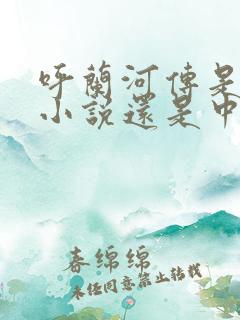 呼蘭河傳是
小說還是中
春绵绵
未经同意禁止转载